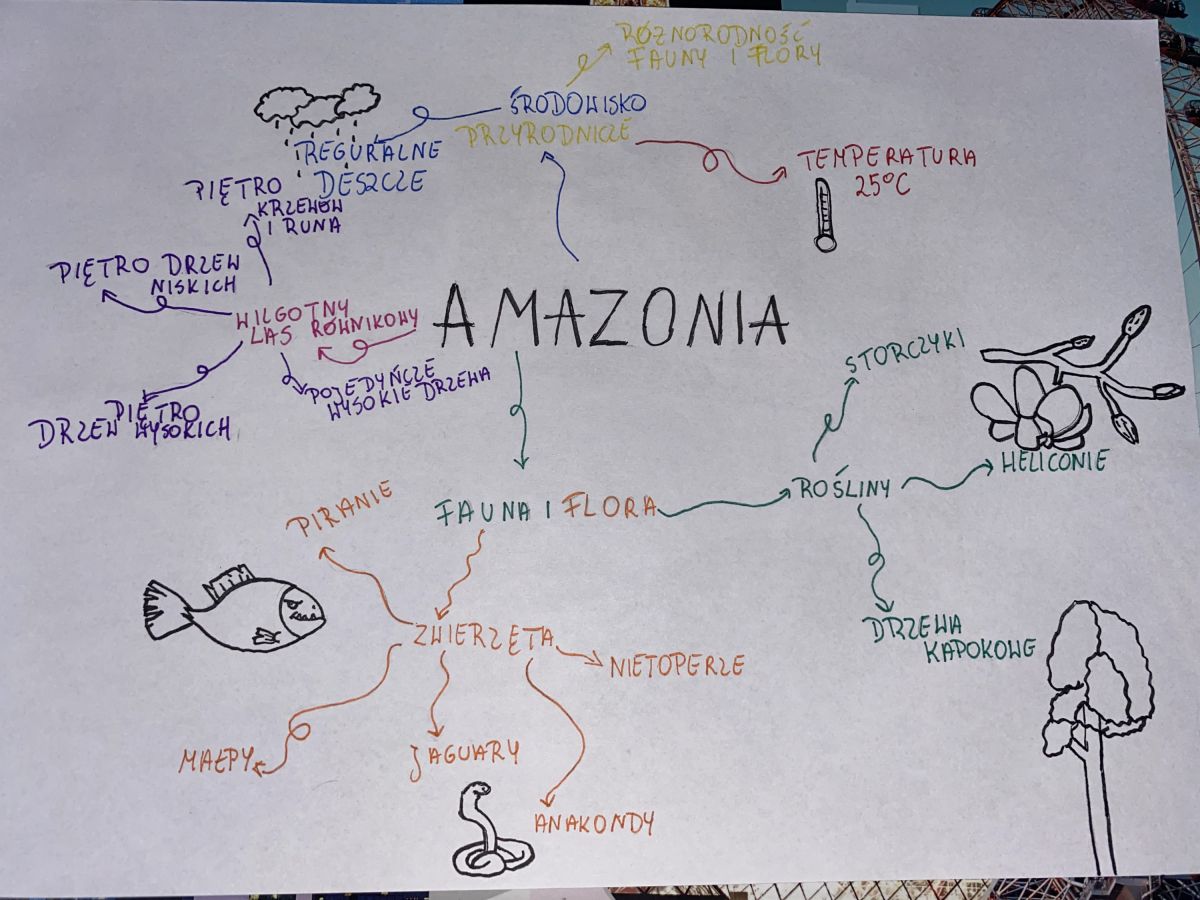 RÓŻNORODNOŚĆ
FAUNY I FLORY
ŚRODOWISKO
PRZYRODNICZE
REGURALNE
DESZCZE
TEMPERATURA
25°C
PIĘTRO
KRZEWÓW
I RUNA
PIĘTRO DRZEW
NISKICH
WILGOTNY
LAS RÓWNIKOWY
AMAZONIA
POJEDYŃCZE
WYSOKIE DRZEWA
PIĘTRO
DRZEW WYSOKICH
STORCZYKI
HELICONIE
ROŚLINY
FAUNA I FLORA
PIRANIE
DRZEWA
KAPOKOWE
ZWIERZĘTA
NIETOPERZE
MAŁPY
JAGUARY
ANAKONDY